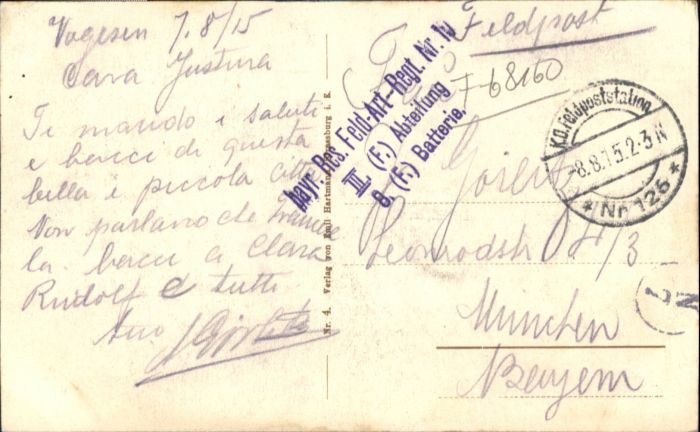 Vogesen 7.8/15
Cara Justina
Ti mando i saluti
e bacci di questa
bella e piccola città
Non parlano che Francese
la. bacci a Clara
Rudolf e tutti
tuo
Nr. 4. Verlag von Emil Hartmann, Strassburg i. E.
Feldpost
F 68160
bayr. Res. Feld-Art-Regt. Nr.
III (F.) Abteilung
8. (F.) Batterie.
K.D. Feldpoststation
8.8.15.2-3 N
* Nr 126 *
4/3
München
Bayern
N
2